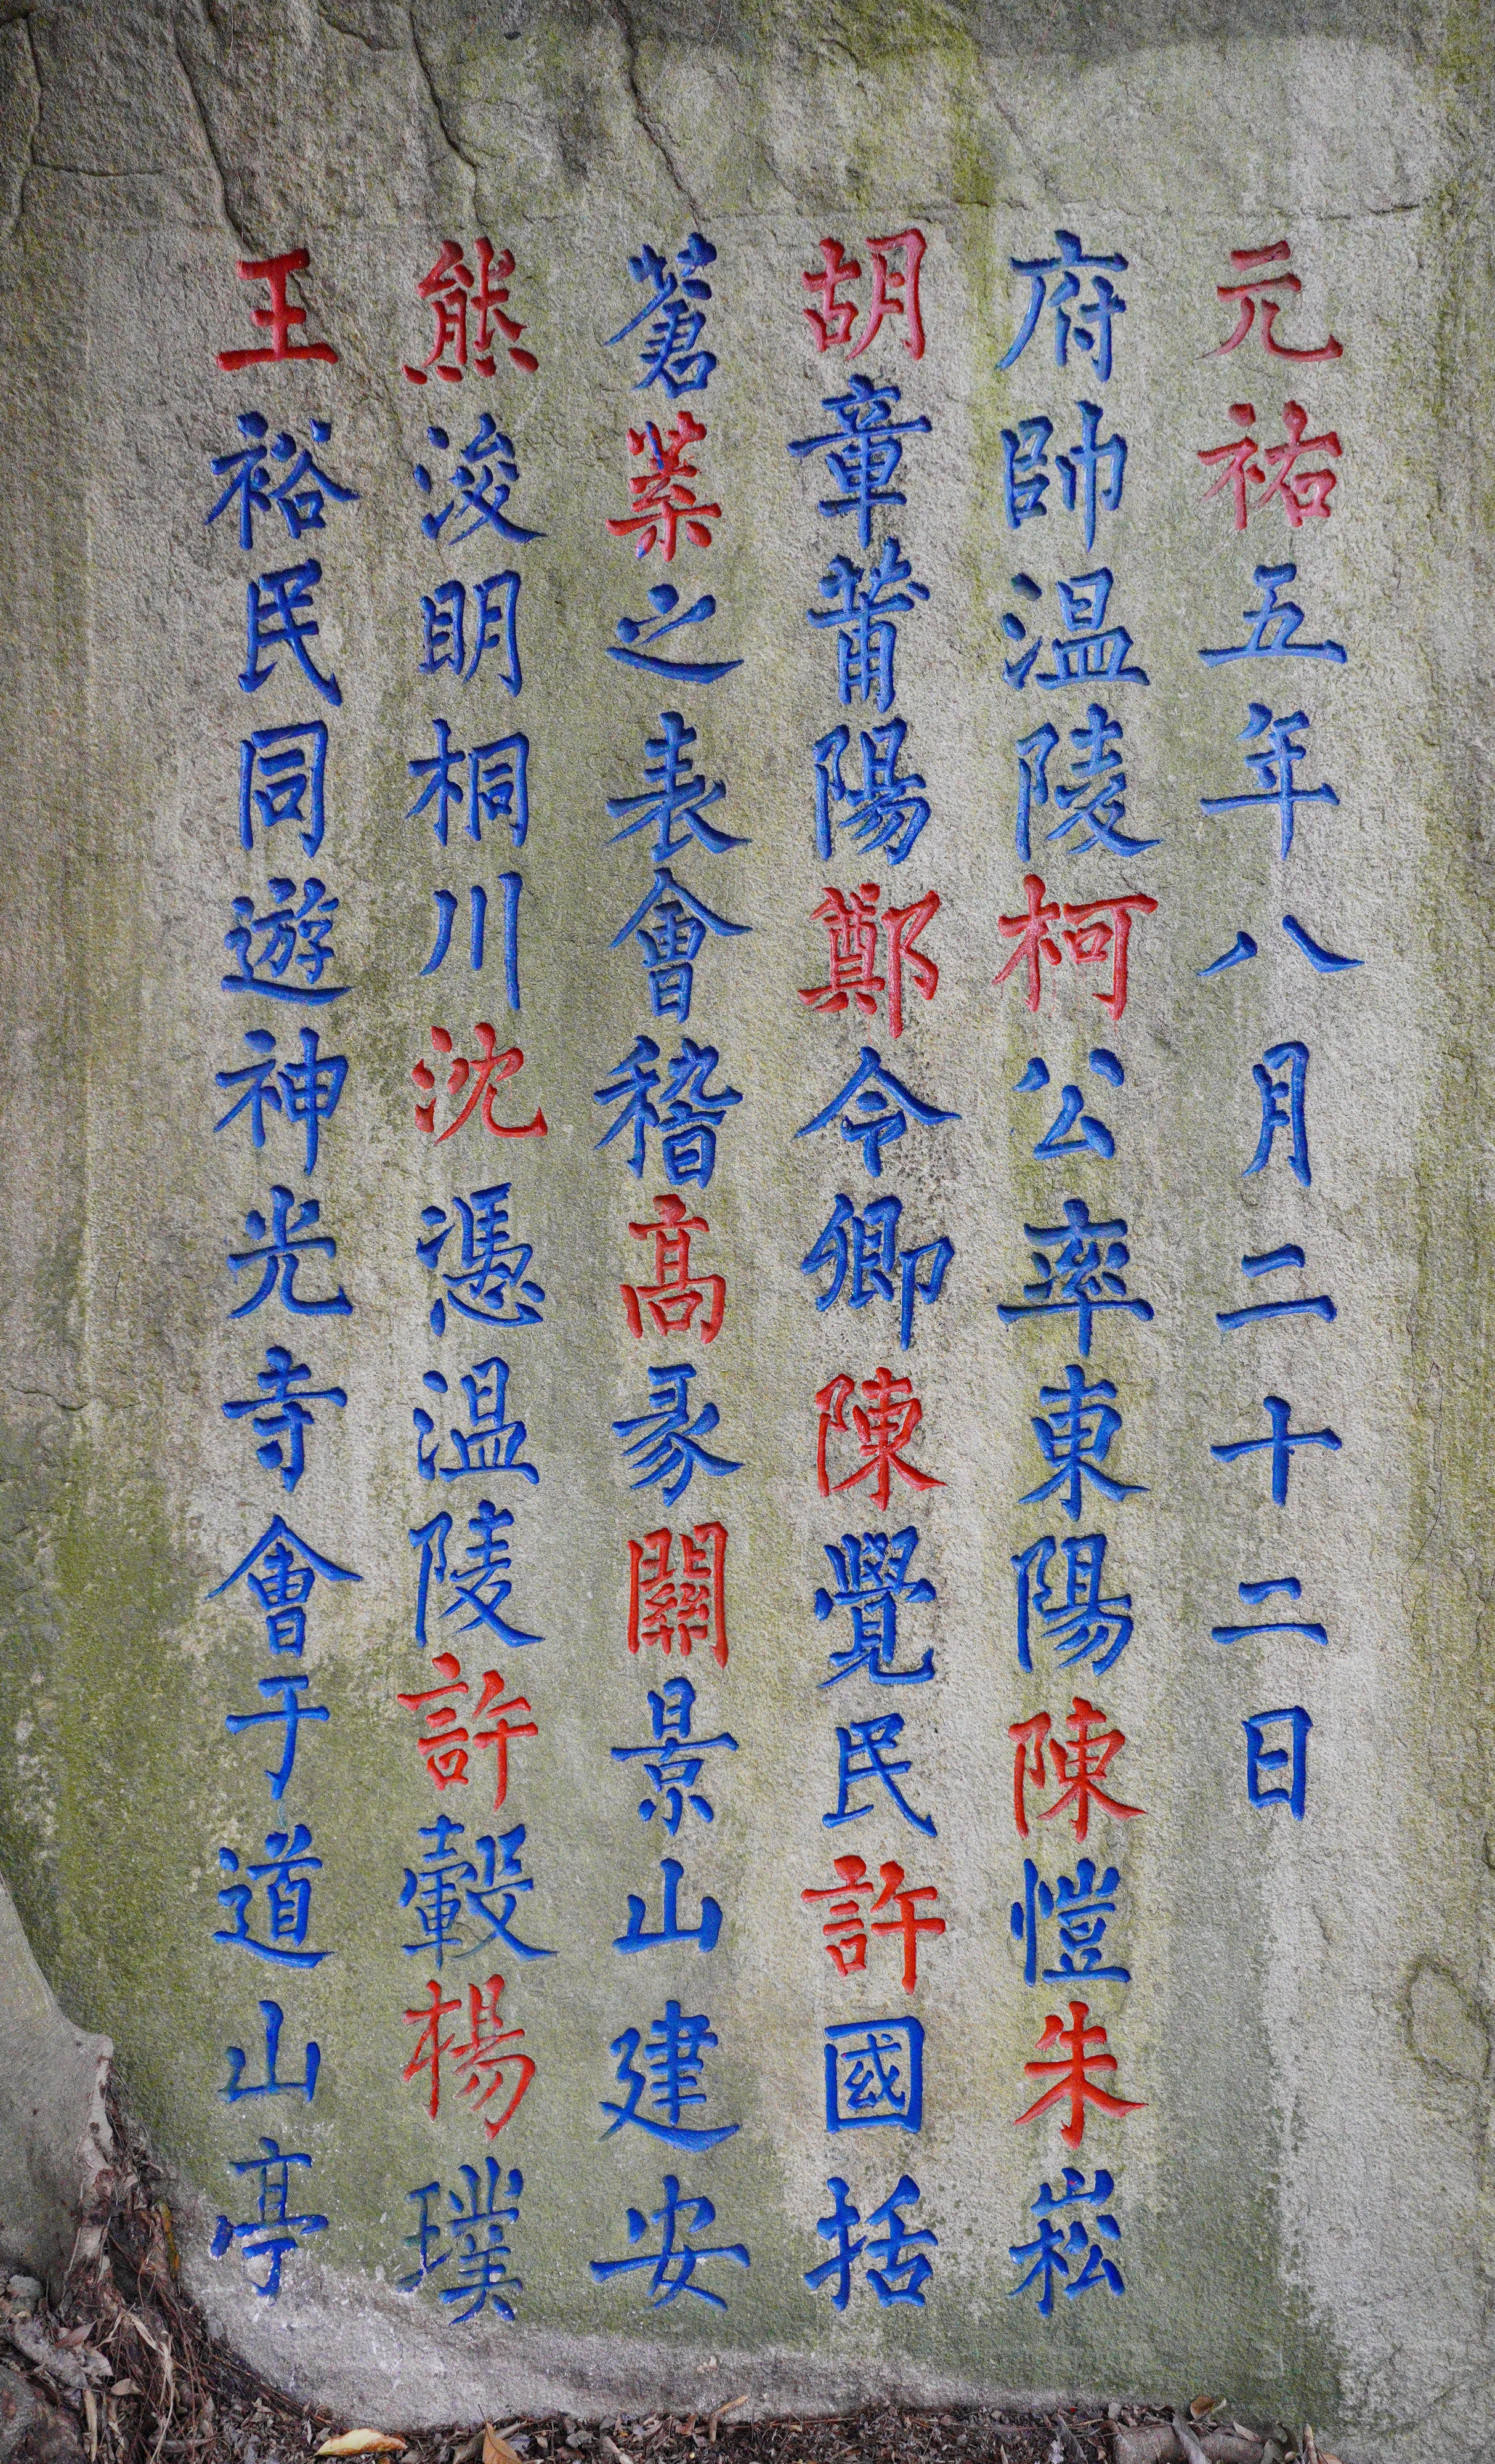 元祐五年八月二十二日
府帥温陵柯公率東陽陳愷朱崧
胡章莆陽鄭令卿陳覺民許國括
蒼葉之表會稽高彖關景山建安
熊浚明桐川沈憑温陵許轂楊璞
王裕民同遊神光寺會于道山亭